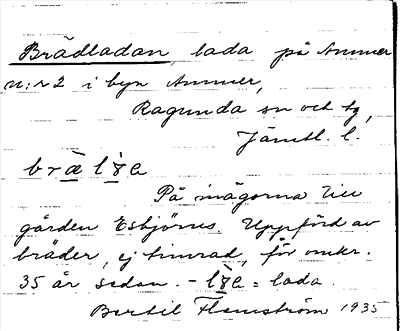 Brädladan, lada på Ammer
n:r 2 i byn Ammer,
Ragunda sn och tg,
Jämtl. l.
På inägorna till
gården Esbjörns. Uppförd av
bräder, ej timrad, för omkr.
35 år sedan. - = lada.
Bertil Flemström 1935